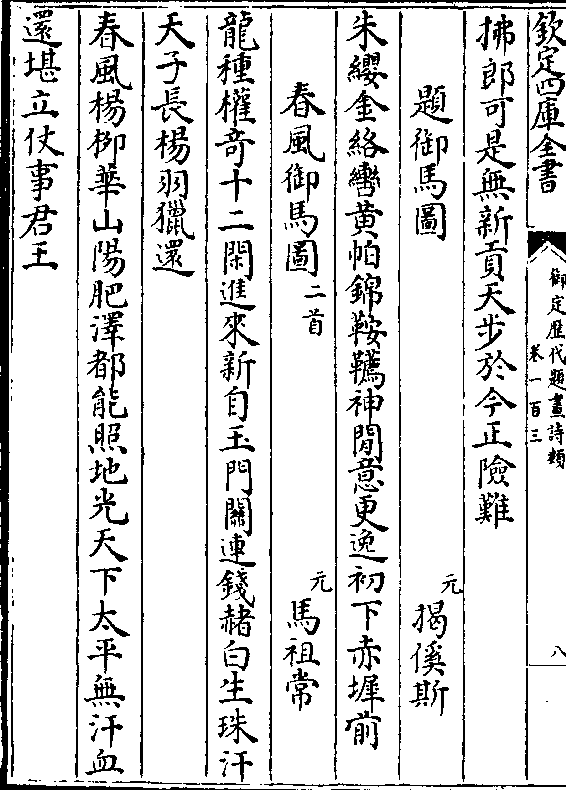 欽定四庫全書
御定歷代題畫詩類
卷一百三
八
拂郎可是無新貢天步於今正險難
題御馬圖 元 揭傒斯
朱纓金絡轡黄帕錦鞍韉神閒意更逸初下赤墀前
春風御馬圖二首 元 馬祖常
龍種權竒十二閑進來新自玉門關連錢赭白生珠汗
天子長楊羽獵還
春風楊柳華山陽肥澤都能照地光天下太平無汗血
還堪立仗事君王